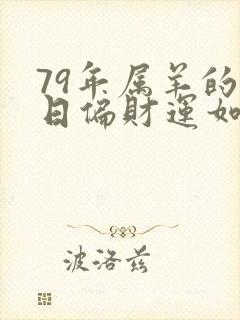 79年属羊的
日偏财运如
波洛兹